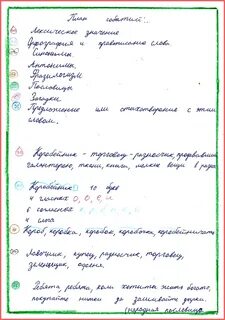 План
Лексическое значение
Орфография и правописание слова.
Синонимы.
Антонимы.
Фразеологизм
Пословицы
Загадки
Предложение или стихотворение с этим
словом.
Коробейник - торговец - разносчик, продававший
галантерею, ткани, книги, мелкие вещи в
Коробейник
4 гласных о, о, е, и
6 согласных к, р, б, й, н, к
4 слога
Короб, коробка, коробок, коробочка, коробейничать
Лавочник, купец, разносчик, торговец,
Ребята, ребята, коли хотите жить богато,
покупайте нитки
(народная пословица)